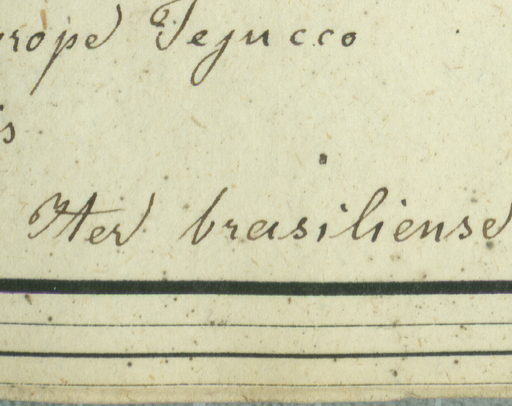 prope Tejucco
is
Iter brasiliense